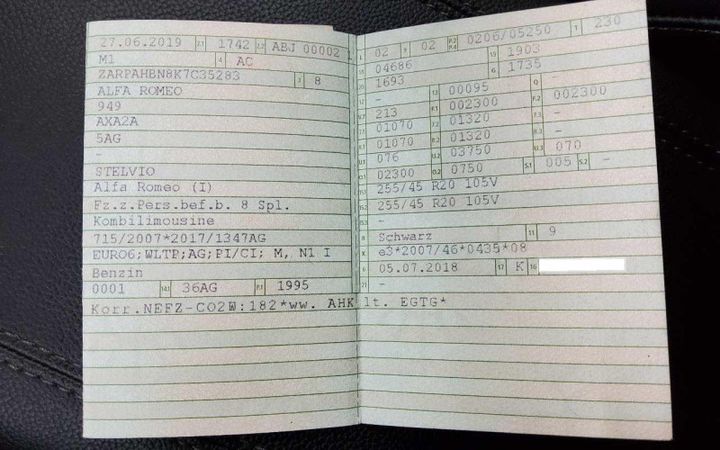 27.06.2019 2.1 1742 2.2 ABJ 00002 1
M1 4 AC
ZARPAHBN8K7C35283 3 8
ALFA ROMEO
949
AXA2A
5AG
-
STELVIO
Alfa Romeo (I)
Fz.z.Pers.bef.b. 8 Spl.
Kombilimousine
715/2007*2017/1347AG
EURO6;WLTP;AG;PI/CI; M, N1 I
Benzin
0001 14.1 36AG P.1 1995
Korr.NEFZ-CO2W:182*ww. AHK lt. EGTG*
L 02 9 02 P.2 P.4 0206/05250 T 230
18 04686 19 1903
20 1693 G 1735
12 - 13 00095 Q -
213 F.1 002300 F.2 002300
01070 7.2 01320 -
01070 8.2 01320 -
U.1 076 U.2 03750 U.3 070
O.1 02300 O.2 0750 S.1 005 S.2 -
15.1 255/45 R20 105V
15.2 255/45 R20 105V
15.3 -
R Schwarz 11 9
K e3*2007/46*0435*08
6 05.07.2018 17 K 16
21 -